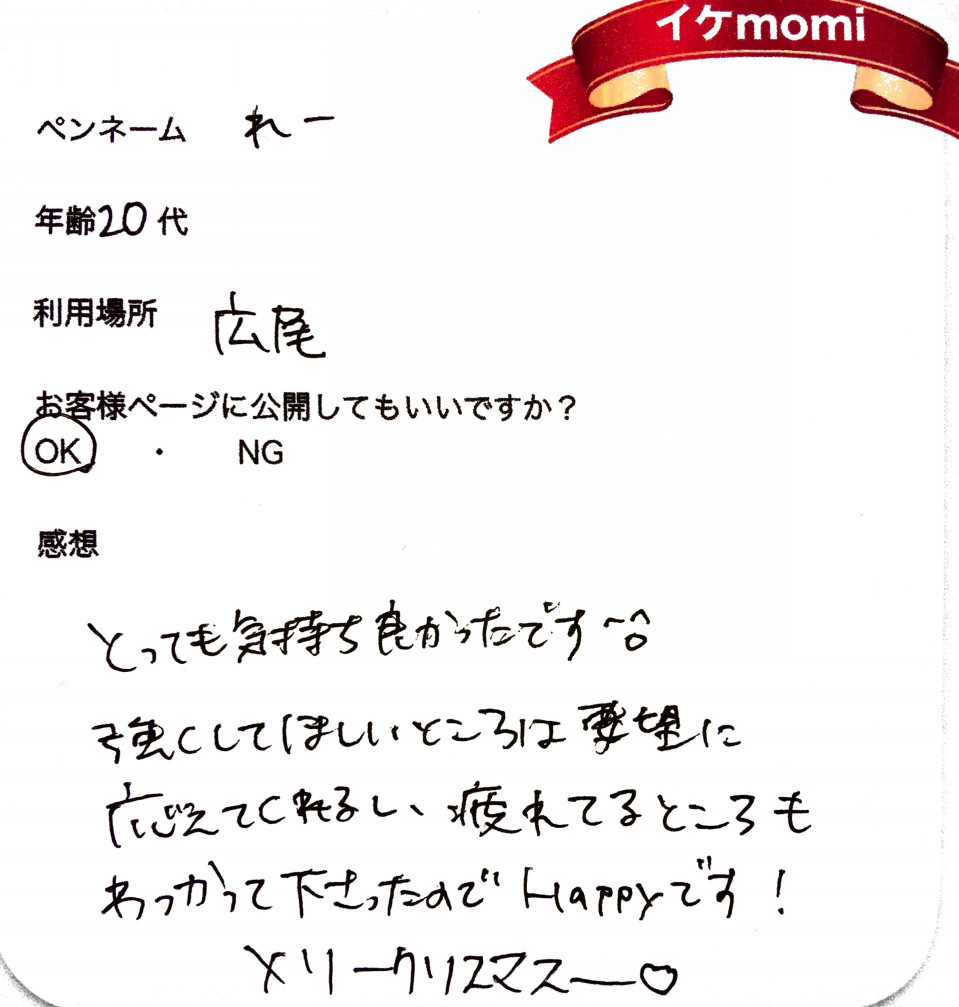 イケmomi
ペンネーム れー
年齢20代
利用場所 広尾
お客様ページに公開してもいいですか？
OK ・ NG
感想
とっても気持ち良かったです〜
強くしてほしいところは要望に
応えてくれるし、疲れてるところも
わっかって下さったので Happyです！
メリークリスマスー♡